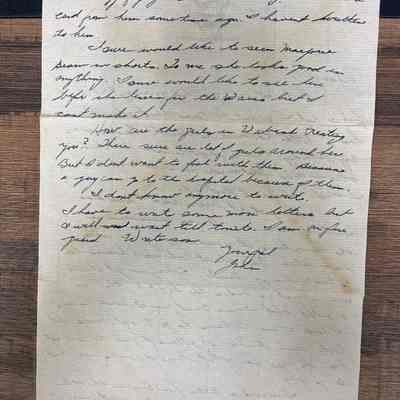 card from him some time ago. I havent written
to him
I sure would like to seen Margie
in shorts. To me she looks good in
anything. I sure would like to see her
before she leaves for the Waves but I
cant make it.
How are the girls in Wabash Treating
you? There sure are lot of girls around here
But I dont want to fool with them Because
a guy can go to the hospital because of them.
I dont know anymore to write
I have to write some more letters but
I will wait till tonite. I am on fire
guard Write soon
Your pal